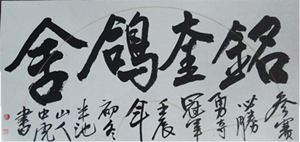 銘奎鴿舍
參賽必勝
勇奪
冠軍
壬辰
年
初冬
半池
山人
忠虎
書